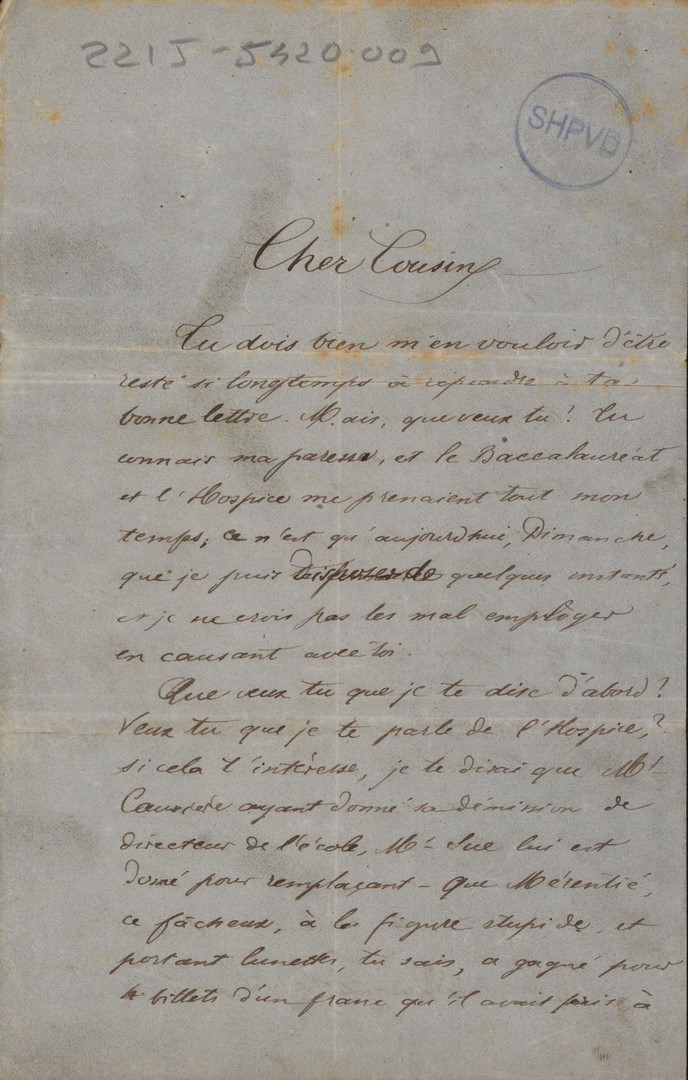 2215-5420.009
SHPVD
Cher Cousin
Tu dois bien m'en vouloir d'être
resté si longtemps à répondre à ta
bonne lettre. Mais, que veux tu! Tu
connais ma paresse, et le Baccalauréat
et l'Hospice me prenaient tout mon
temps; ce n'est qu'aujourd'hui, Dimanche,
que je puis disposer de quelques instants,
et je ne crois pas les mal employer
en causant avec toi.
Que veux tu que je te dise d'abord?
Veux tu que je te parle de l'Hospice,?
si cela t'intéresse, je te dirai que Mr
ayant donné sa démission de
directeur de l'école, Mr Sue lui est
donné pour remplaçant - Que Mérentié,
ce fâcheux, à la figure stupide, et
portant lunettes, tu sais, a gagné pour
4 billets d'un franc qu'il avait pris à